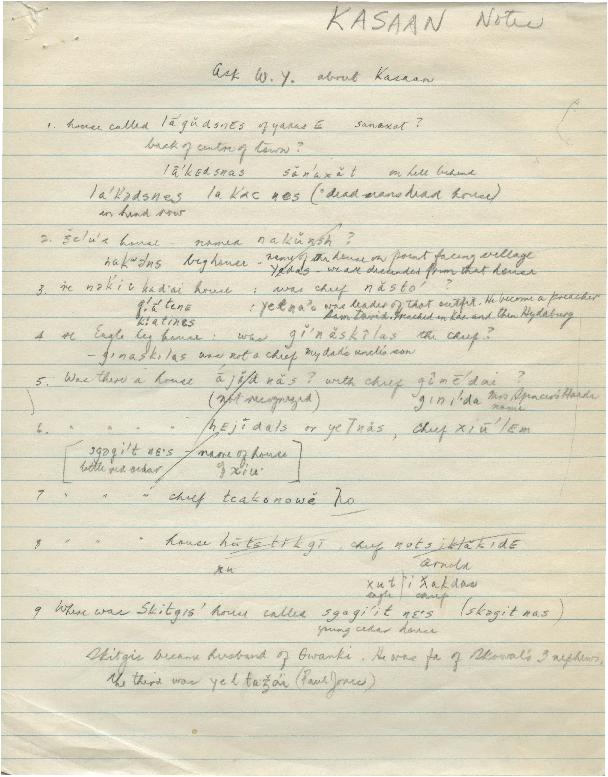 KASAAN Notes
Ask W. Y. about Kasaan
1. house called lá gŭdsnEs of yadas E sanaxat?
back of centre of town?
lā'kEdsnas săn'axăt on hill behind
la'kadsnes lakac nes ("dead mans dead house)
in hand row
2. house - named nakŭnsh?
nak'ons beghouse - name of the house on point facing village
Yadas - we are descended from that house
3. re nakic kadai house : was chief năsto' ?
: was leader of that outfit. He became a preacher
kiatines Sam David. Preached in Kas and then Hydaburg
4 re Eagle leg house : was gi'năskilas the chief?
- ginaskilas was not a chief my dad's uncle's son
5. Was there a house ájŭd năs? with chief ?
(not recognized) gini'da Mrs Spencer's Haida
name
6. " " " " hEjidals or yelnăs, chief xiŭ'lEm
[ sgagi't nE's - name of house ]
little red cedar of xiu
7 " " " chief tcakonowĕ No
8 " " " house , chief
xu Arnold
xut
eagle chief
9 Where was Skitgis' house called sgagi'it nE's (skagit nas)
young cedar house
Skitgis became husband of Gwanki. He was fa of Skowal's 3 nephews,
the third was yel (Paul Jones)